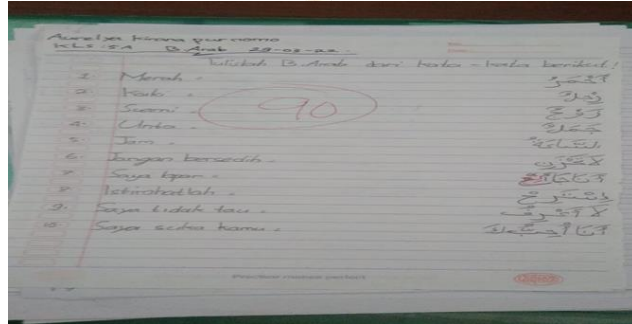 Aurelya Kirana purnomo
KLS : 5A B. Arab 29-03-22
Tulislah B. Arab dari kata - kata berikut!
1. Merah = أَحْمَرُ
2. Kaki = رِجْلٌ
3. Suami = زَوْجٌ
4. Unta = جَمَلٌ
5. Jam = السَّاعَةُ
6. Jangan bersedih = لَا تَحْزَنْ
7. Saya lapar = أَنَا جَائِعٌ
8. Istirahatlah = اِسْتَرِحْ
9. Saya tidak tau = لَا أَعْرِفُ
10. Saya suka kamu = أَنَا أُحِبُّكَ
90